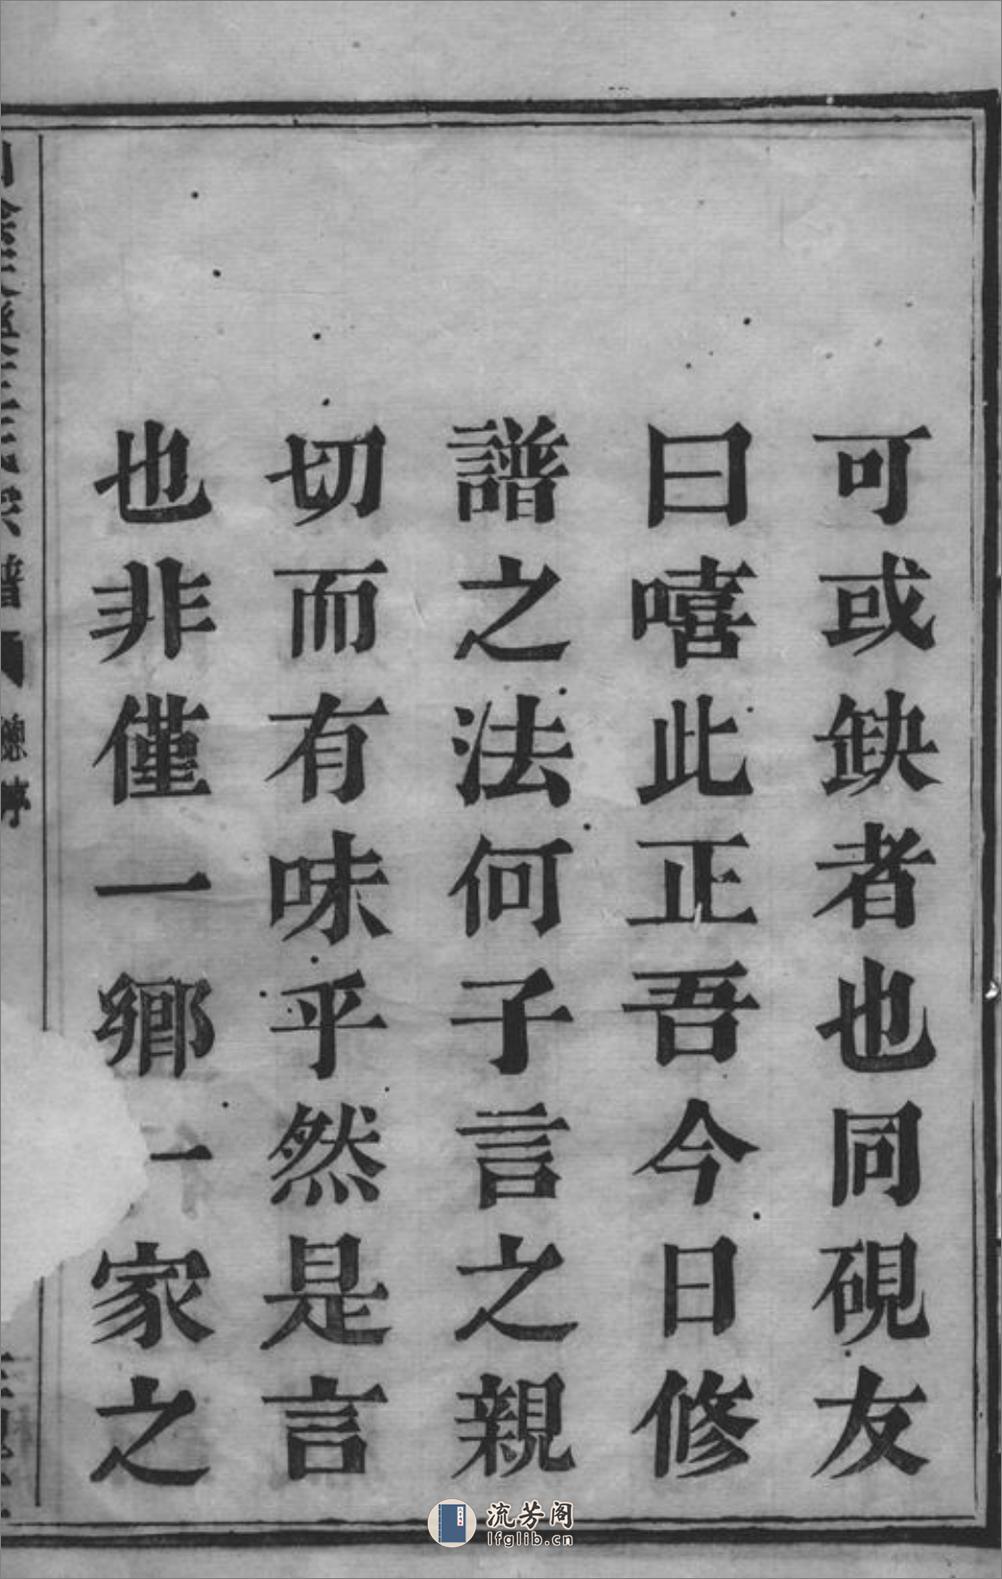 可或缺者也同硯友
曰嘻此正吾今日修
譜之法何子言之親
切而有味乎然是言
也非僅一鄉一家之
流芳阁
lfglib.cn